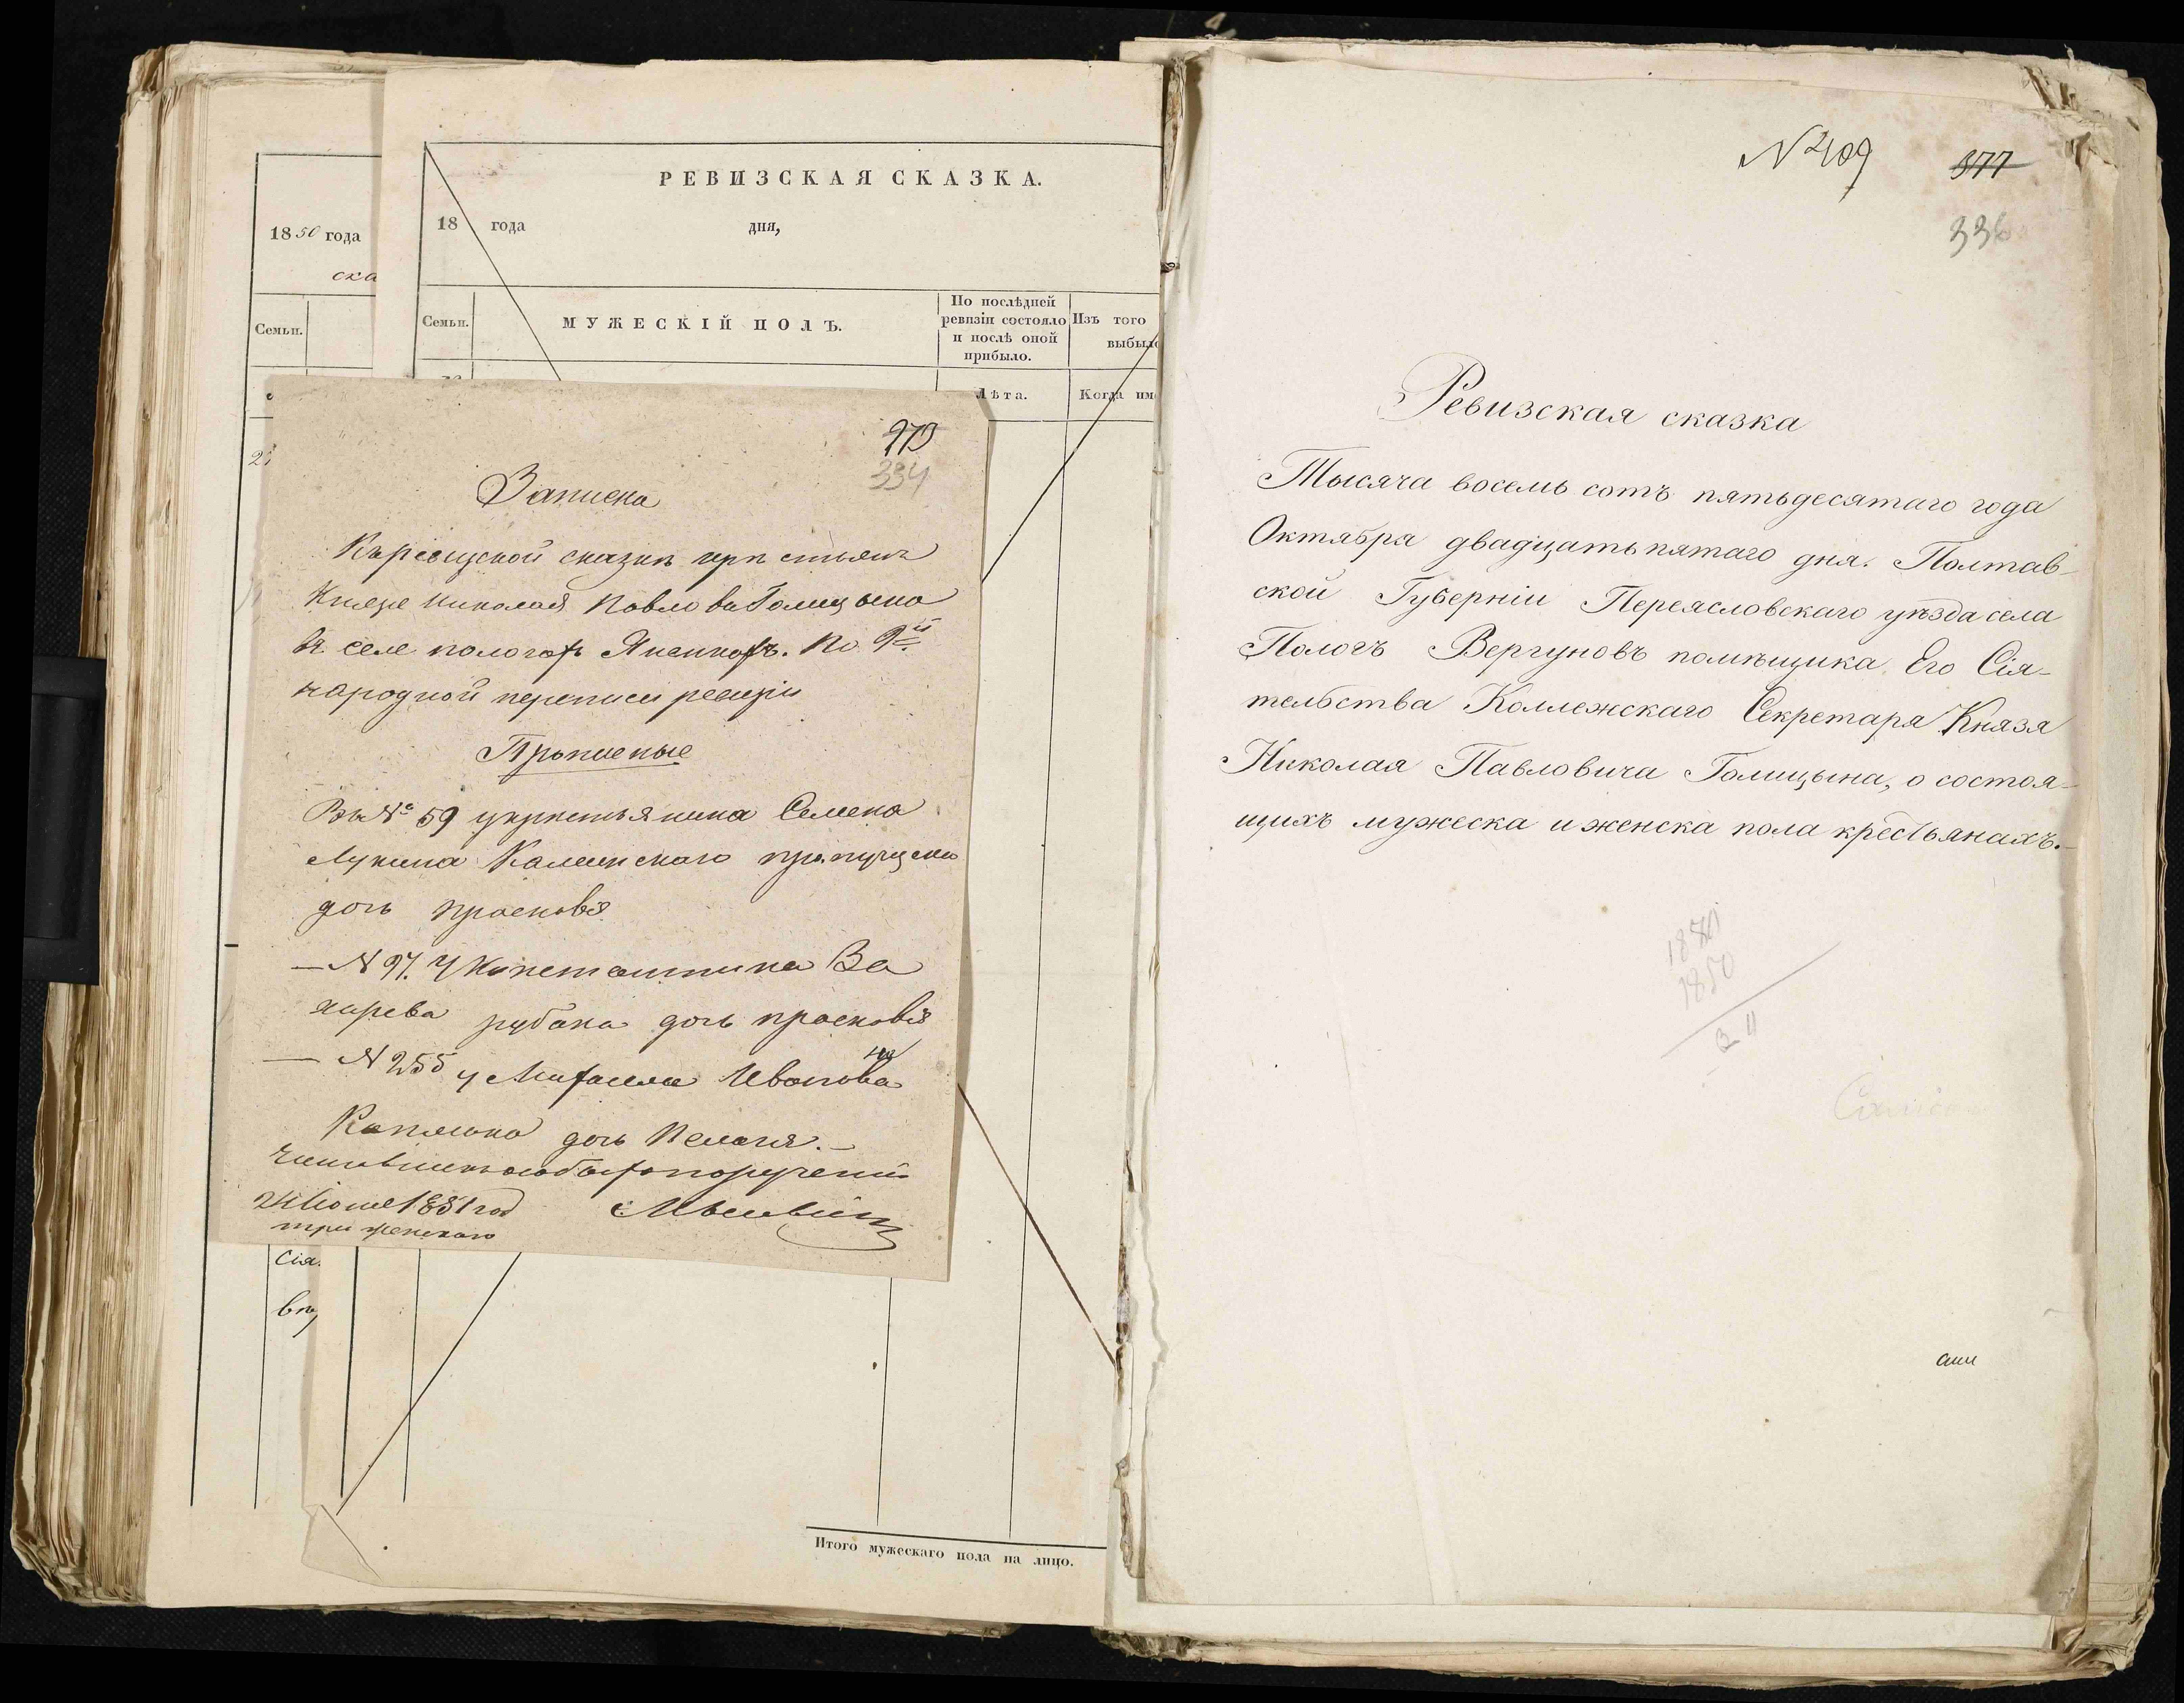 1850 года
ска
Семьи.
РЕВИЗСКАЯ СКАЗКА.
18 года дня,
Семьи.
МУЖЕСКІЙ ПОЛЪ.
По послѣдней
ревизіи состояло
и послѣ оной
прибыло.
Изъ того
выбыло
Лѣта.
Когда им
334
Записка
Къ ревизской сказки крестьянъ
Князя Николая Павлова Голицына
въ селе пологахъ Яненкахъ. По 9й
народной переписи ревизіи
Прописные
Въ № 59 у крестьянина Семена
Лукина Каминскаго пропущена
дочь Прасковія
— N 97. У Константина За
харева рубана дочь прасковія
— N 255 у Михаила Иванова
дочь Пелагія. —
24 Іюня 1851 год
три женскаго
Сія
вѣ
Итого мужескаго пола на лицо.
N 409
377
336
Ревизская сказка
Тысяча восемь сотъ пятьдесятаго года
Октября двадцать пятаго дня. Полтав-
ской Губерніи Переясловскаго уѣзда села
Пологъ Вергуновъ помѣщика Его Сія-
тельства Коллежскаго Секретаря Князя
Николая Павловича Голицына, о состоя-
щихъ мужеска и женска пола крестьянахъ.—
1850